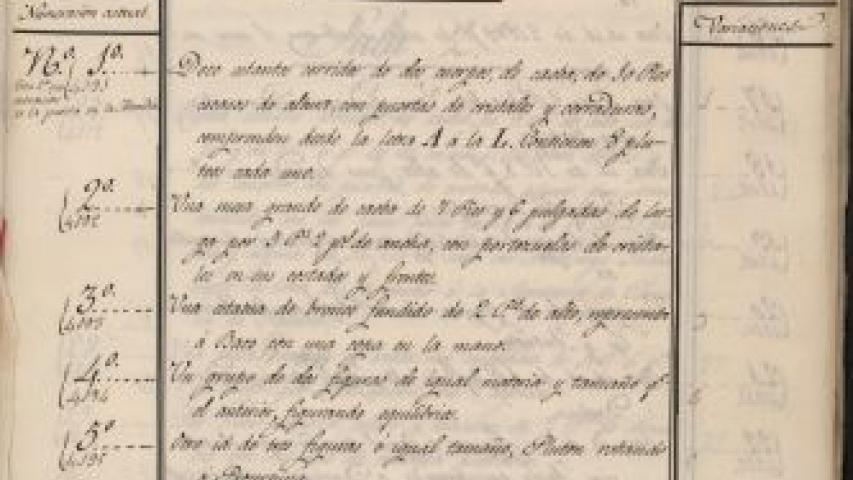 Numeración actual
Variaciones
Nº. 1º.
Doce estantes corridos de dos cuerpos, de caoba, de 10 Pies
escasos de altura, con puertas de cristales y cerraduras,
comprenden desde la letra A a la L. Contienen 8 plu-
teos cada uno.
2º.
Una mesa grande de caoba de 7 Pies y 6 pulgadas de lar-
go por 3 Ps. 2 pds. de ancho, con portezuelas de crista-
les en sus costados y frentes.
3º.
Una estatua de bronce fundido de 2 Ps. de alto, representa
á Baco con una copa en la mano.
4º.
Un grupo de dos figuras de igual materia y tamaño q.
el anterior, figurando equilibrios.
5º
Otro id. de tres figuras é igual tamaño, Pluton robando
a Proserpina